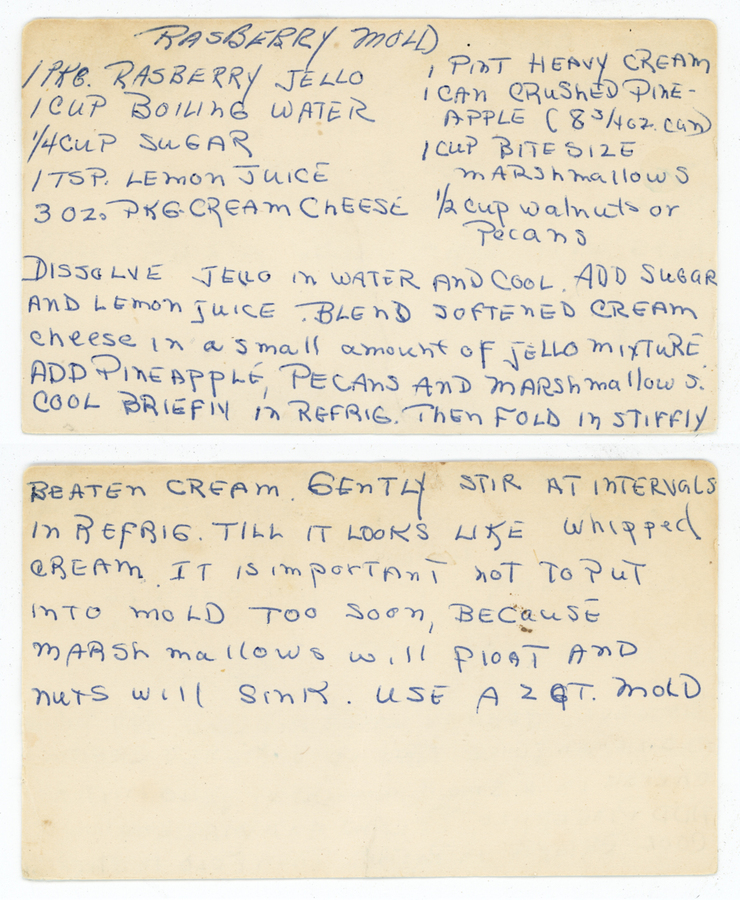 RASBERRY MOLD
1 PKG. RASBERRY JELLO
1 CUP BOILING WATER
1/4 CUP SUGAR
1 TSP. LEMON JUICE
3 OZ. PKG CREAM CHEESE
1 PINT HEAVY CREAM
1 CAN CRUSHED PINE-
APPLE (8 3/4 OZ. can)
1 CUP BITE SIZE
MARSHmallowS
1/2 cup walnuts or
Pecans
DISSOLVE JELLO in WATER AND COOL. ADD SUGAR
AND LEMON JUICE. BLEND SOFTENED CREAM
cheese in a small amount of JELLO MIXTURE.
ADD PINEAPPLE, PECANS AND MARSHmallowS.
COOL BRIEFLY in REFRIG. THEN FOLD in STIFFLY
BEATEN CREAM. GENTLY STIR AT INTERVALS
in REFRIG. TILL IT LOOKS LIKE whipped
CREAM. IT IS importANT not TO PUT
INTO MOLD TOO SOON, BECAUSE
MARSHmallows will FLOAT AND
nuts will SINK. USE A 2 QT. MOLD